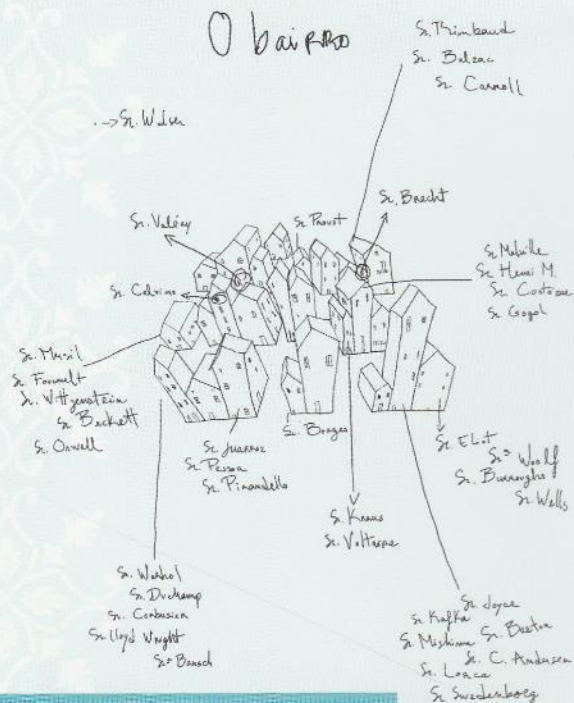 O bairro
Sr. Rimbaud
Sr. Balzac
Sr. Carroll
Sr. Walser
Sr. Brecht
Sr. Valéry
Sr. Proust
Sr. Calvino
Sr. Melville
Sr. Henri M.
Sr. Cortázar
Sr. Gogol
Sr. Musil
Sr. Foucault
Sr. Wittgenstein
Sr. Beckett
Sr. Orwell
Sr. Juarroz
Sr. Pessoa
Sr. Pirandello
Sr. Borges
Sr. Eliot
Srª Woolf
Sr. Burroughs
Sr. Wells
Sr. Kraus
Sr. Voltaire
Sr. Warhol
Sr. Duchamp
Sr. Corbusier
Sr. Lloyd Wright
Srª Bausch
Sr. Joyce
Sr. Kafka
Sr. Breton
Sr. Mishima
Sr. C. Andersen
Sr. Lorca
Sr. Swedenborg